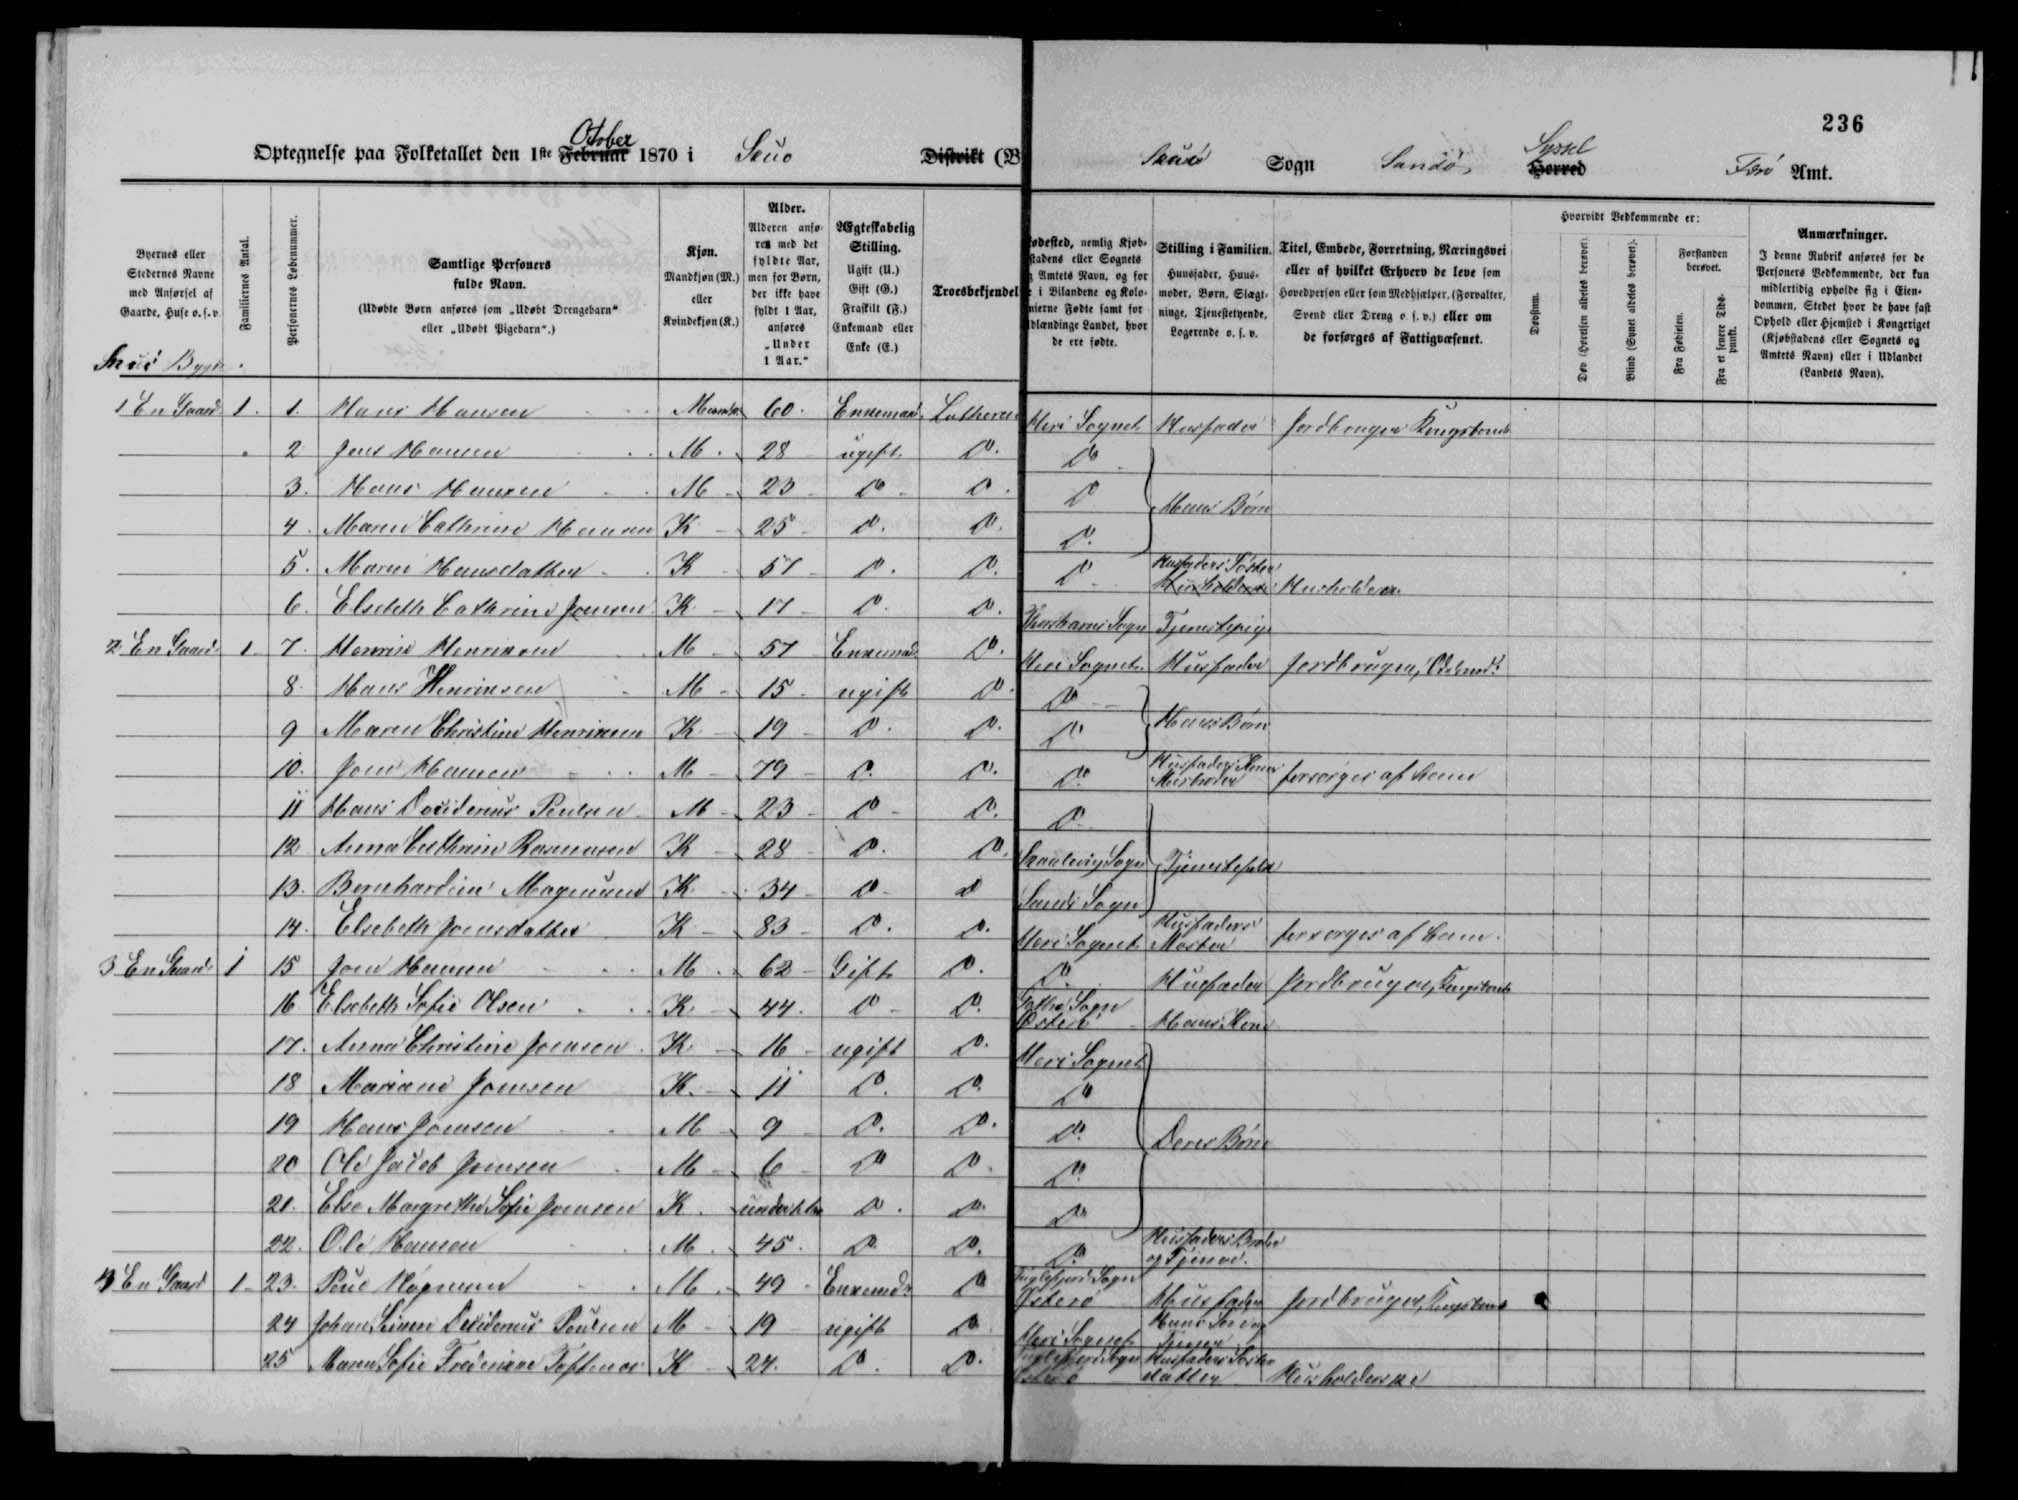 236
Optegnelse paa Folketallet den 1ste Februar October 1870 i Skuø Distrikt (B
Skuø Sogn Sandø Herred Syssel Færø Amt.
Byernes eller Stedernes Navne med Anførsel af Gaarde, Huse o.s.v.
Familiernes Antal.
Personernes Løbenummer.
Samtlige Personers fulde Navn.
(Udøbte Børn anføres som „Udøbt Drengebarn“ eller „Udøbt Pigebarn“.)
Kjøn.
Mandkjøn (M.) eller Kvindekjøn (K.)
Alder.
Alderen anføres med det fyldte Aar, men for Børn, der ikke have fyldt 1 Aar, anføres „Under 1 Aar.“
Ægteskabelig Stilling.
Ugift (U.) Gift (G.) Fraskilt (F.) Enkemand eller Enke (E.)
Troesbekjendel
ødested, nemlig Kjøbstadens eller Sognets g Amtets Navn, og for e i Bilandene og Kolonierne Fødte samt for dlændinge Landet, hvor de ere fødte.
Stilling i Familien.
Huusfader, Huusmoder, Børn, Slægtninge, Tjenestetyende, Logerende o. s. v.
Titel, Embede, Forretning, Næringsvei eller af hvilket Erhverv de leve som Hovedperson eller som Medhjælper, (Forvalter, Svend eller Dreng o. s. v.) eller om de forsørges af Fattigvæsenet.
Hvorvidt Vedkommende er:
Døvstum.
Døv (Hørelsen aldeles berøvet).
Blind (Synet aldeles berøvet).
Forstanden berøvet.
Fra Fødselen.
Fra et senere Tidspunkt.
Anmærkninger.
I denne Rubrik anføres for de Personers Vedkommende, der kun midlertidig opholde sig i Eiendommen, Stedet hvor de have fast Ophold eller Hjemsted i Kongeriget (Kjøbstadens eller Sognets og Amtets Navn) eller i Udlandet (Landets Navn).
Skuø Bygd
1 En Gaard 1. 1. Hans Hansen 60. Enkemand Her i Sognet Husfader Jordbruger Kongsbonde
2 Jens Hansen M. 28 ugift Do. Do
3. Hans Hansen M 23 Do Do. Do Hans Børn
4. Maren Cathrine Hansen K 25 Do. Do. Do.
5. Maren Hansdatter K 57 Do. Do. Do Husfaders Søster Husholderske
6. Elsebeth Cathrine Joensen K 17 Do. Do. Thorshavns Sogn Tjenestepige
2 En Gaard 1 7. Henrik Henriksen M 57 Enkemand Do. Her i Sognet Husfader Jordbruger,
8. Hans Henriksen M 15 ugift Do. Do
9 Maren Christine Henriksen K 19 Do. Do. Do Hans Børn
10. Joen Hansen M 79 Do. Do. Do. forsørges af ham
11 Hans Desiderius Poulsen M 23 Do Do. Do
12 Anna Cathrine Rasmussen K 28 Do. Do. Skaalevig Sogn Tjenestefolk
13. Bernhardine Magnussen K 34 Do Do Sands Sogn
14. Elsebeth Joensdatter K 83 Do. Do. Her i Sognet Husfaders Moster forsørges af ham.
3 En Gaard 1 15 Joen Hansen M 62 Gift Do. Do. Husfader Jordbruger, Kongsbonde
16 Elsebeth Sofie Olsen K 44. Do Do. Gøthe Sogn Østerø Hans Kone
17. Anna Christine Joensen K 16 ugift Do. Her i Sognet
18 Mariane Joensen K. 11 Do. Do. Do
19 Hans Joensen M 9 Do. Do. Do. Deres Børn
20 Ole Jacob Joensen M 6 Do Do. Do.
21. Else Margrethe Sofie Joensen K. under 1 Aar Do. Do. Do
22. Ole Hansen M. 45. Do Do. Do. Husfaders Broder og Tjener.
4 En Gaard 1 23. Poul Magnusen M. 49 Enkemand Do Fuglefjord Sogn Østerø Husfader Jordbruger, Kongsbonde
24 Johan Desiderius Poulsen M 19 ugift Do Her i Sognet Hans Søn og Tjener
25 Maren Sofie Frederikke K 24. Do. Do. Fuglefjord Sogn Østerø Husfaders Søster datter Husholderske